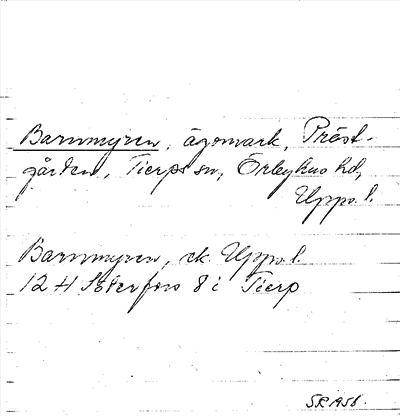 Barnmyren, ägomark, Präst-
gården, Tierps sn, Örbyhus hd,
Upps. l.
Barnmyren, ek. Upps. l.
12 H Söderfors 8 i Tierp
SR 1956.